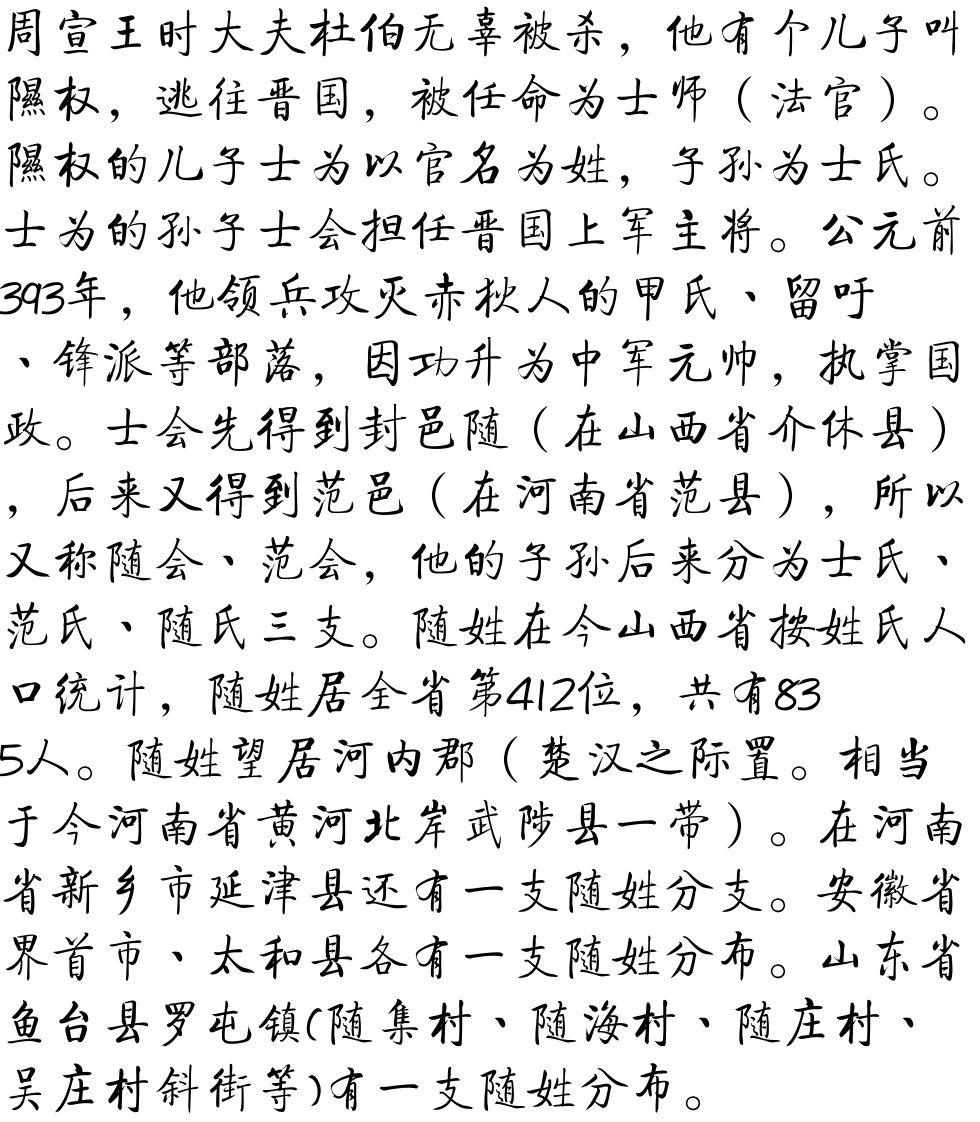 周宣王时大夫杜伯无辜被杀，他有个儿子叫
隰权，逃往晋国，被任命为士师（法官）。
隰权的儿子士为以官名为姓，子孙为士氏。
士为的孙子士会担任晋国上军主将。公元前
393年，他领兵攻灭赤狄人的甲氏、留吁
、锋派等部落，因功升为中军元帅，执掌国
政。士会先得到封邑随（在山西省介休县）
，后来又得到范邑（在河南省范县），所以
又称随会、范会，他的子孙后来分为士氏、
范氏、随氏三支。随姓在今山西省按姓氏人
口统计，随姓居全省第412位，共有83
5人。随姓望居河内郡（楚汉之际置。相当
于今河南省黄河北岸武陟县一带）。在河南
省新乡市延津县还有一支随姓分支。安徽省
界首市、太和县各有一支随姓分布。山东省
鱼台县罗屯镇(随集村、随海村、随庄村、
吴庄村斜街等)有一支随姓分布。